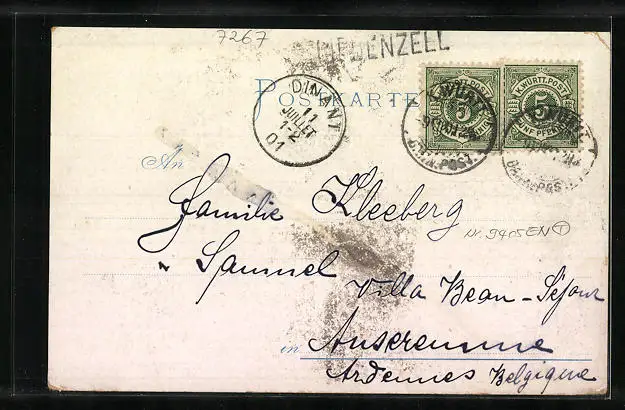 7267
LIEBENZELL
DINANT
11
JUILLET
1-2
01
POSTKARTE
K.WÜRTT.POST
5
FÜNF PFENNIG
K.WÜRTT.POST
5
FÜNF PFENNIG
K.WÜRTT.
BAHNPOST
BAHNPOST
An
Familie Kleeberg
Nr. 9405EN
" Samuel
Villa Beau-Séjour
in Anseremme
Ardennes Belgique